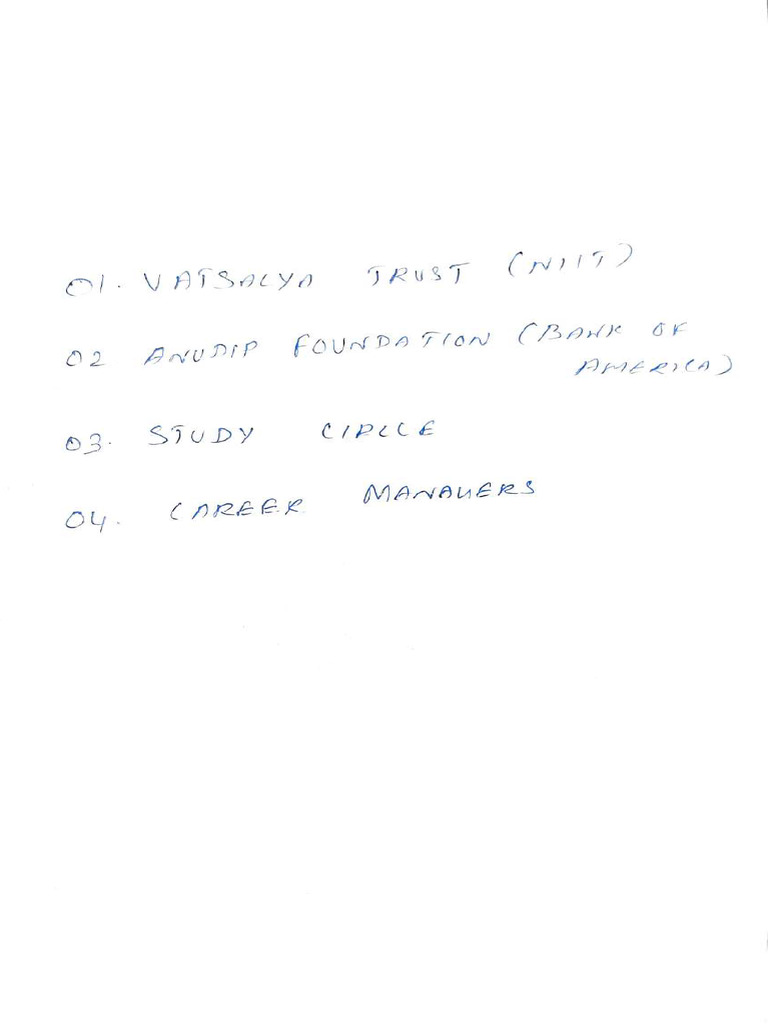 01. VATSALYA TRUST (NIIT)
02 ANUDIP FOUNDATION (BANK OF
AMERICA)
03. STUDY CIRCLE
04. CAREER MANAGERS